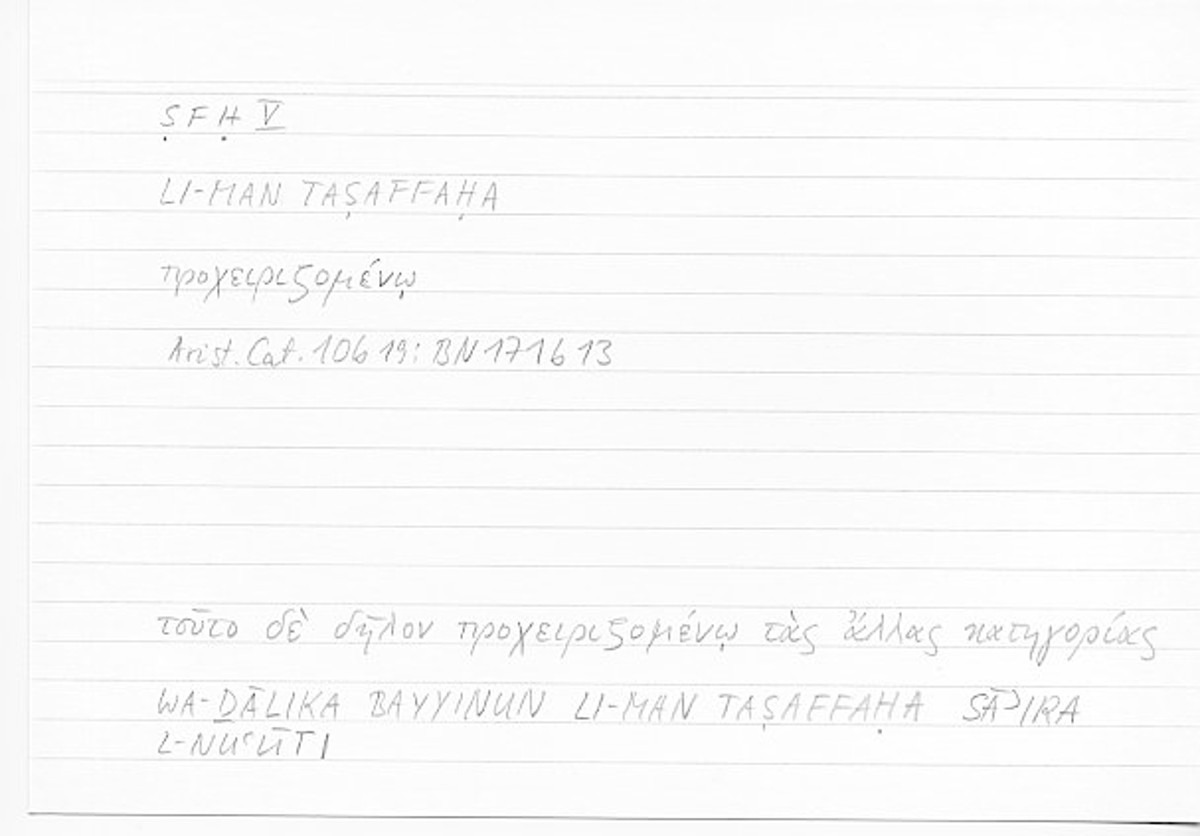 ṢFḤ V
LI-MAN TAṢAFFAḤA
προχειριζομένῳ
Arist. Cat. 10b 19: BN 171b 13
τοῦτο δὲ δῆλον προχειριζομένῳ τὰς ἄλλας κατηγορίας
WA-ḎĀLIKA BAYYINUN LI-MAN TAṢAFFAḤA SĀʾIRA
L-NUʿŪTI